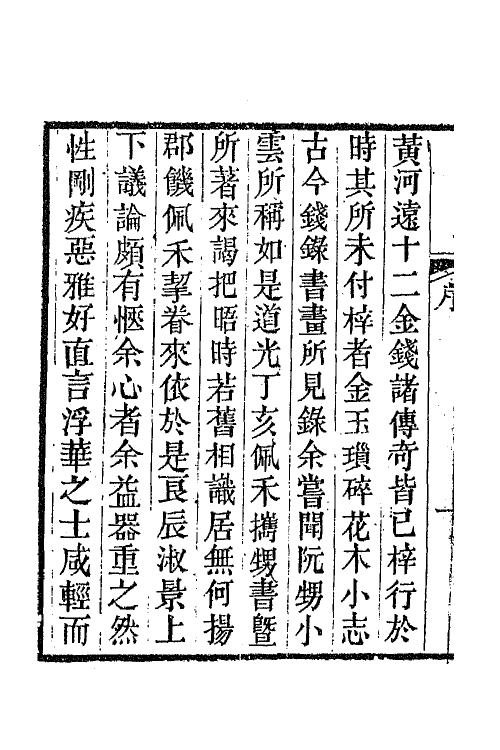 黃河遠十二金錢諸傳奇皆已梓行於
時其所未付梓者金玉瑣碎花木小志
古今錢錄書畫所見錄余嘗聞阮甥小
雲所稱如是道光丁亥佩禾攜甥書暨
所著來謁把晤時若舊相識居無何揚
郡饑佩禾挈眷來依於是良辰淑景上
下議論頗有愜余心者余益器重之然
性剛疾惡雅好直言浮華之士咸輕而
序